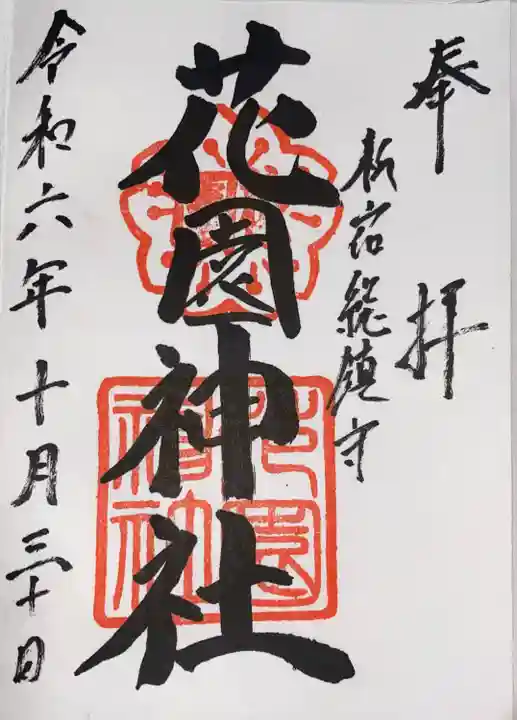 奉拝
新宿総鎮守
花園神社
花園神社
令和六年十月三十日